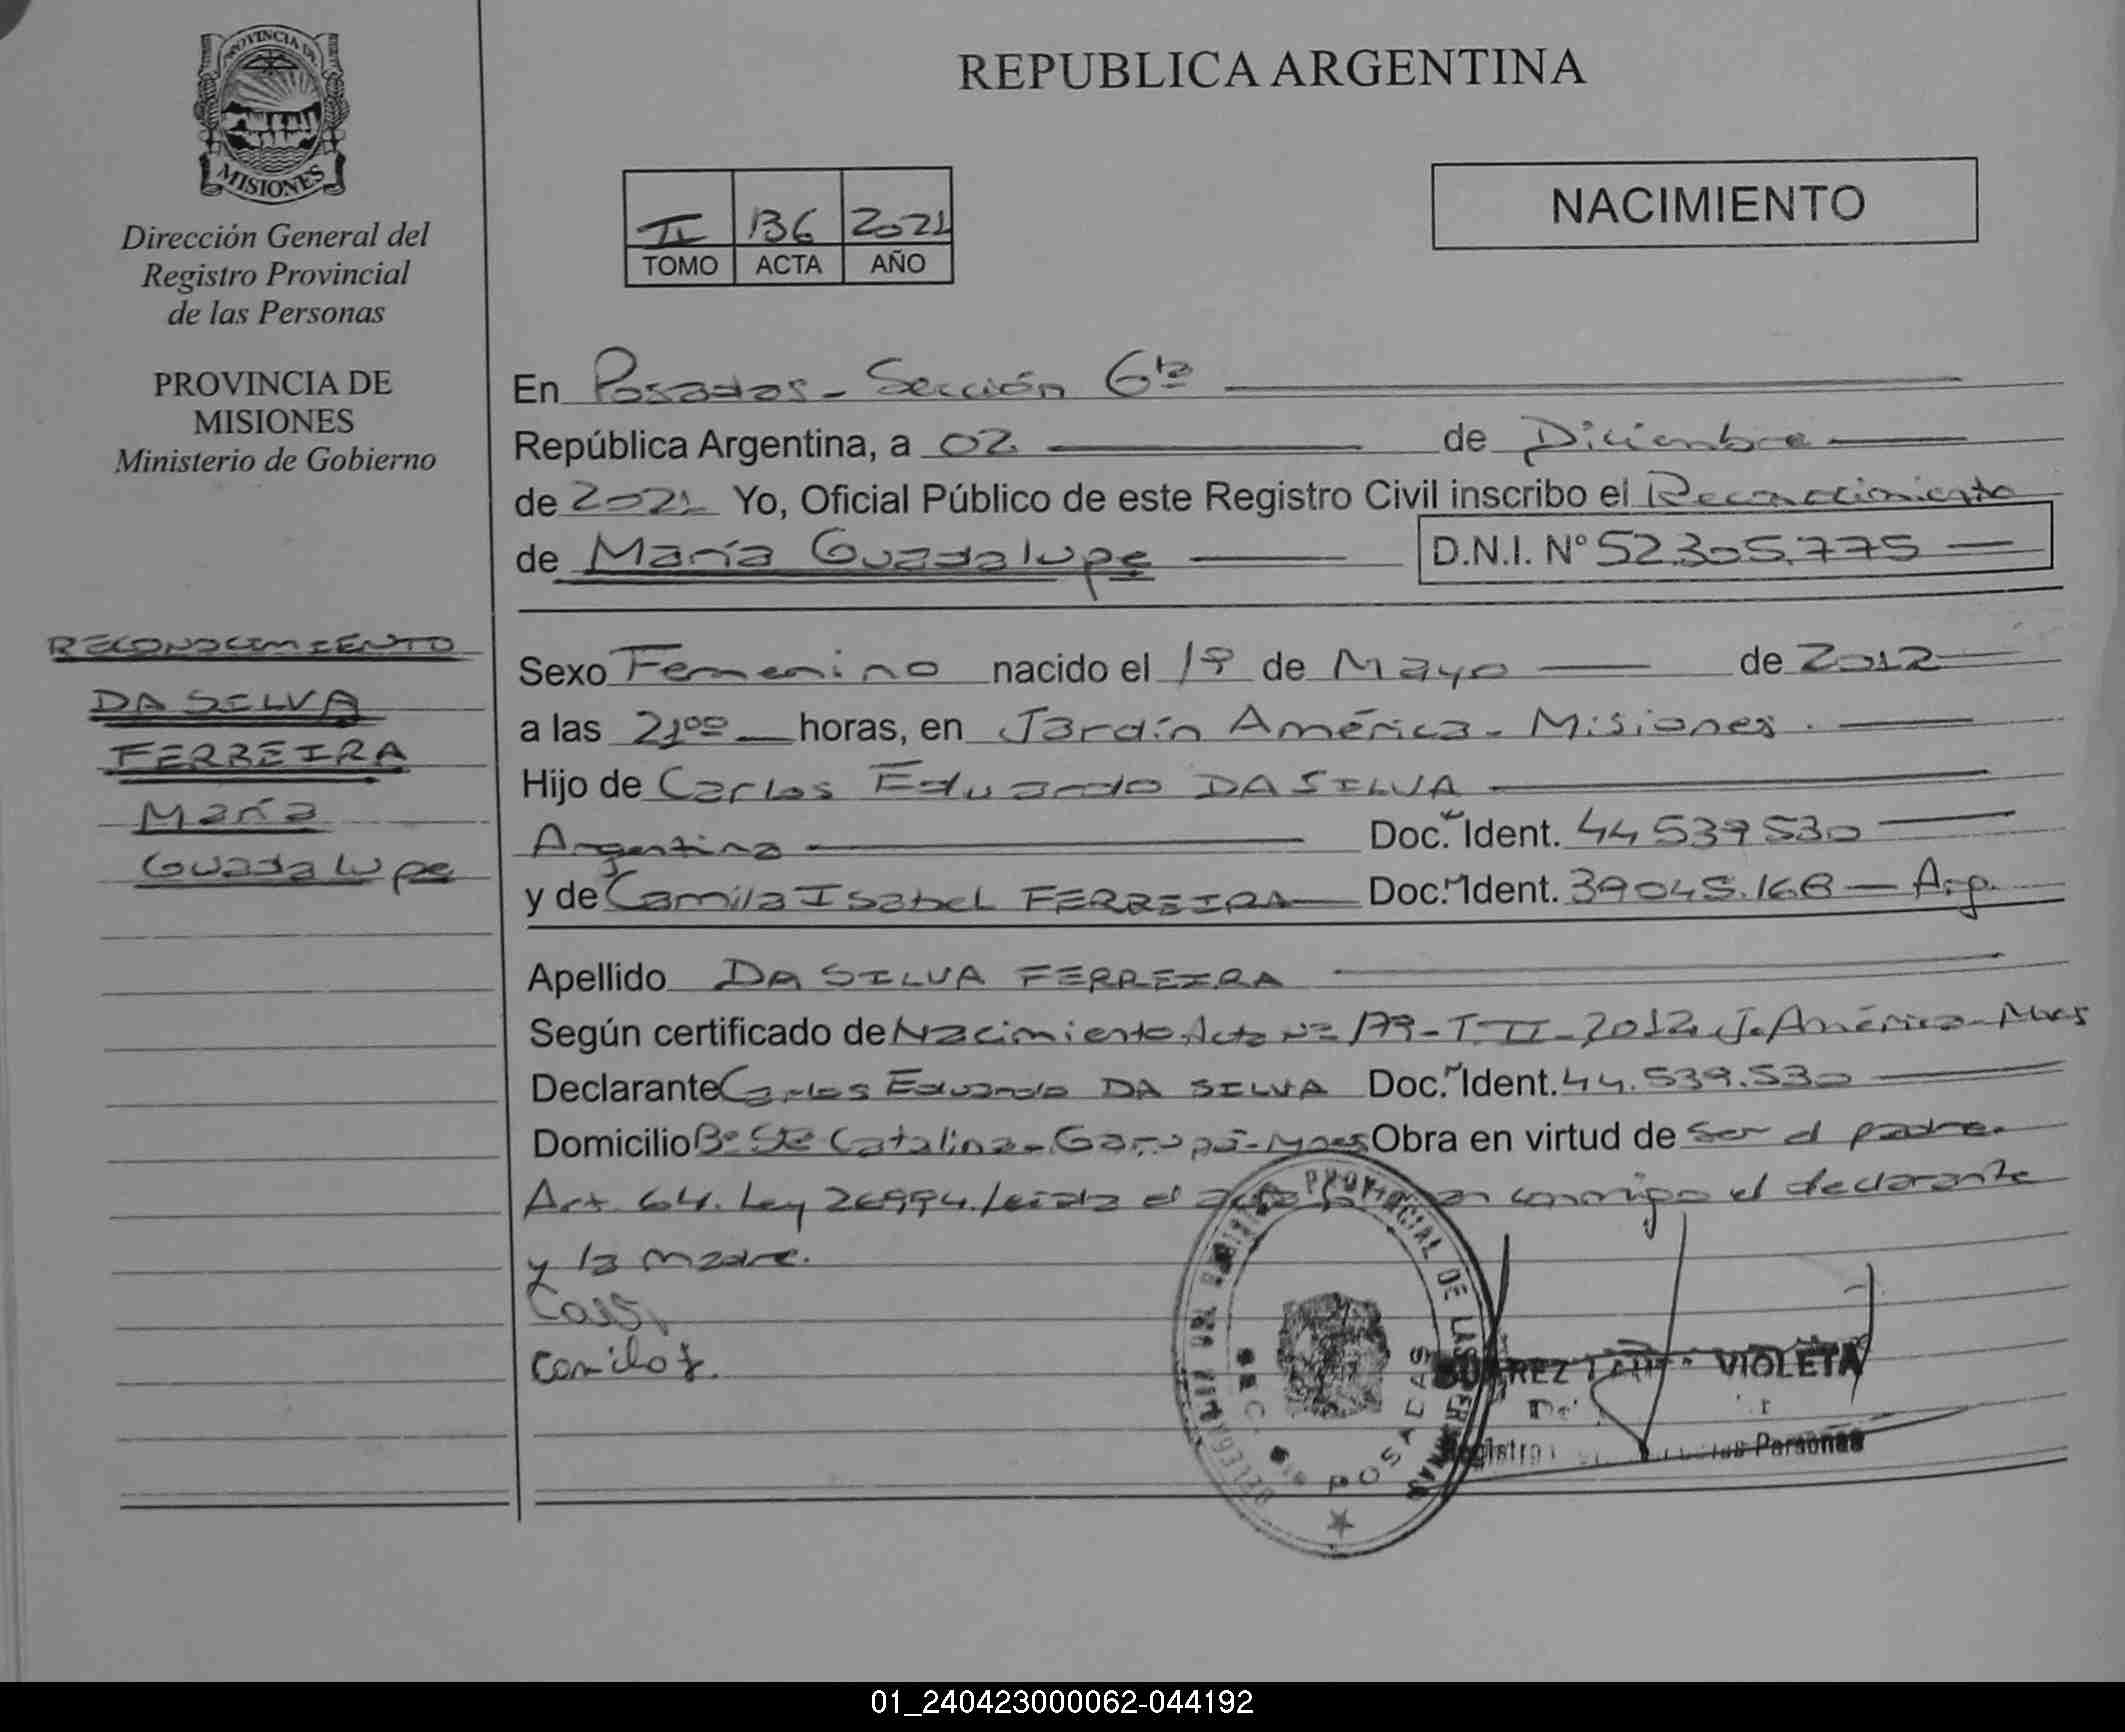 PROVINCIA DE
MISIONES
Dirección General del
Registro Provincial
de las Personas
PROVINCIA DE
MISIONES
Ministerio de Gobierno
RECONOCIMIENTO
DA SILVA
FERREIRA
María
Guadalupe
REPUBLICA ARGENTINA
II 136 2021
TOMO ACTA AÑO
NACIMIENTO
En Posadas - Sección 6ta
República Argentina, a 02 de Diciembre
de 2021 Yo, Oficial Público de este Registro Civil inscribo el Reconocimiento
de María Guadalupe D.N.I. N° 52.305.775
Sexo Femenino nacido el 19 de Mayo de 2012
a las 21 00 horas, en Jardín América - Misiones.
Hijo de Carlos Eduardo DA SILVA
Argentina Doc. Ident. 44 539 530
y de Camila Isabel FERREIRA Doc. Ident. 39045.168 Arg.
Apellido DA SILVA FERREIRA
Según certificado de Nacimiento Acta N° 179 - T. II - 2012 J. América - Mnes
Declarante Carlos Eduardo DA SILVA Doc. Ident. 44.539.530
Domicilio B° Sta Catalina - Garupá - Mnes Obra en virtud de ser el padre.
Art. 64. Ley 26994. leída el acta conmigo el declarante
y la madre.
Camila f.
REGISTRO PROVINCIAL DE LAS PERSONAS
DELEGACION
SEC.
POSADAS
SUAREZ VIOLETA
Registro Personas
01_240423000062-044192